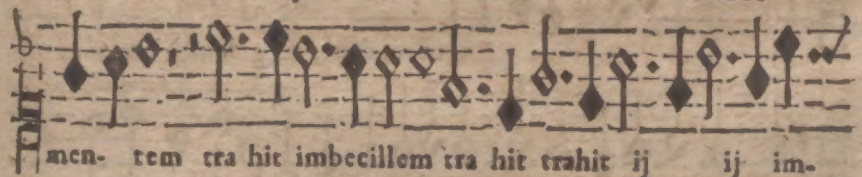 men- tem tra hit imbecillem tra hit trahit ij ij im-